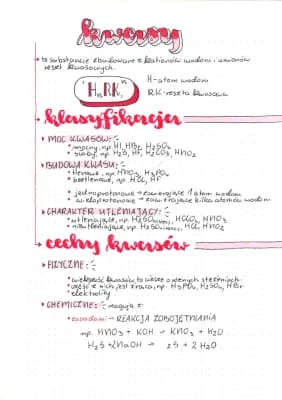 kwasy
to substancje zbudowane z kationów wodoru i anionów
reszt kwasowych.
HₙRK
H-atom wodoru
RK-reszta kwasowa
klasyfikacja
MOC KWASÓW:
mocny, np. HI, HBr, H₂SO₄
słaby, np. H₂S, HF, H₂CO₃, HNO₂
BUDOWA KWASU:
tlenowe, np. HNO₃, H₃PO₄
beztlenowe, np. HCl, HF
jednoprotonowe → zawierające 1 atom wodoru
wieloprotonowe → zawierające kilka atomów wodoru
CHARAKTER UTLENIAJĄCY:
utleniające, np. H₂SO₄, HClO₄, HNO₃
nieutleniające, np. H₂SO₄, HCl, HNO₂
cechy kwasów
FIZYCZNE:
większość kwasów to ciecze o różnych stężeniach
część z nich jest żrąca, np. H₃PO₄, H₂SO₄, HBr
elektrolity
CHEMICZNE: reagują z:
zasadami → REAKCJA ZOBOJĘTNIANIA
np. HNO₃ + KOH → KNO₃ + H₂O
H₂S + 2NaOH → 2S + 2H₂O